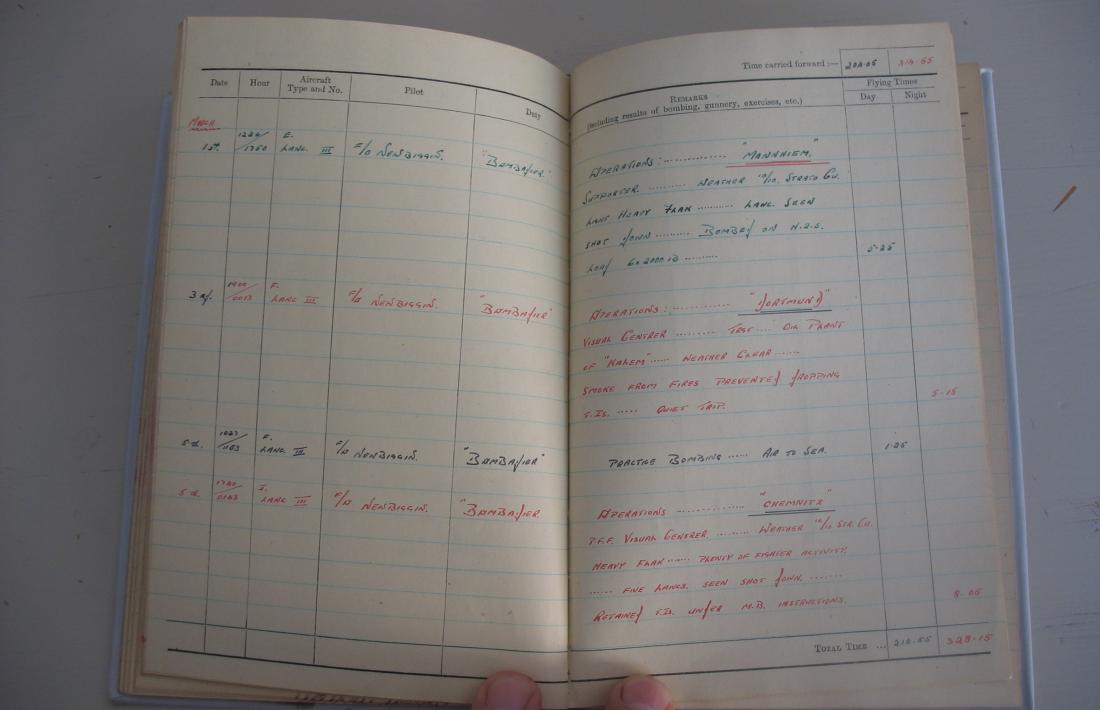 Time carried forward :— 204.05 314.55
Date Hour Aircraft Type and No. Pilot Duty
REMARKS (including results of bombing, gunnery, exercises, etc.) Flying Times Day Night
MARCH
1st. E. LANC III F/O NEWBIGGIN. "BOMBAdIER." OPERATIONS: "MANNHIEM."
SUPPORTER. WEATHER 10/10. STRATO CU.
HEAVY FLAK LANC. SEEN
SHOT dOWN BOMBEd ON H.2.S.
LOAd 6x2000.lb 5.25
3 Rd. F. LANC III F/O NEWBIGGIN. "BOMBAdIER" OPERATIONS: "dORTMUNd"
VISUAL CENTRER TRGT OIL PLANT
OF "KALEM" WEATHER CLEAR
SMOKE FROM FIRES PREVENTEd dROPPING
T.Is. QUIET TRIP. 5.15
5th. F. LANC. III F/O NEWBIGGIN. "BOMBAdIER" PRACTICE BOMBING AIR TO SEA. 1.25
5th. I. LANC III F/O NEWBIGGIN. "BOMBAdIER. OPERATIONS "CHEMNITZ"
P.F.F. VISUAL CENTRER. WEATHER 10/10 STR. CU.
HEAVY FLAK PLENTY OF FIGHTER ACTIVITY.
FIVE LANCS. SEEN SHOT dOWN.
RETAINEd T.Is. UNdER M.B. INSTRUCTIONS. 8.05
TOTAL TIME ... 210.55 328.15